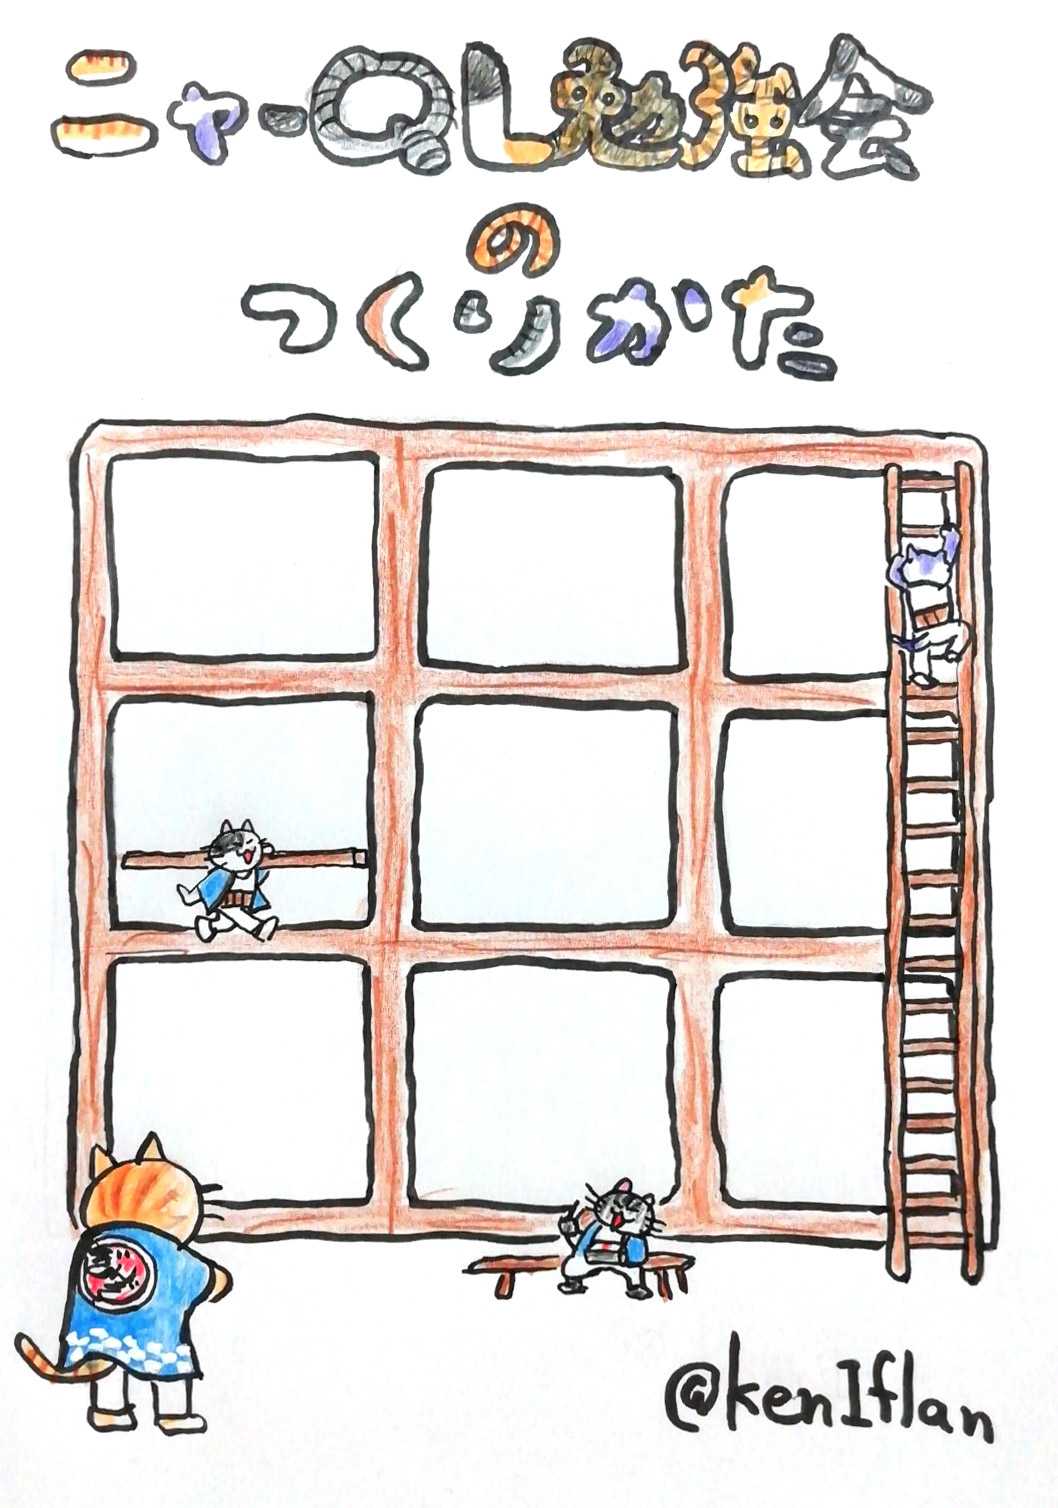 ニャーQL勉強会
の
つくりかた
@kenIflan